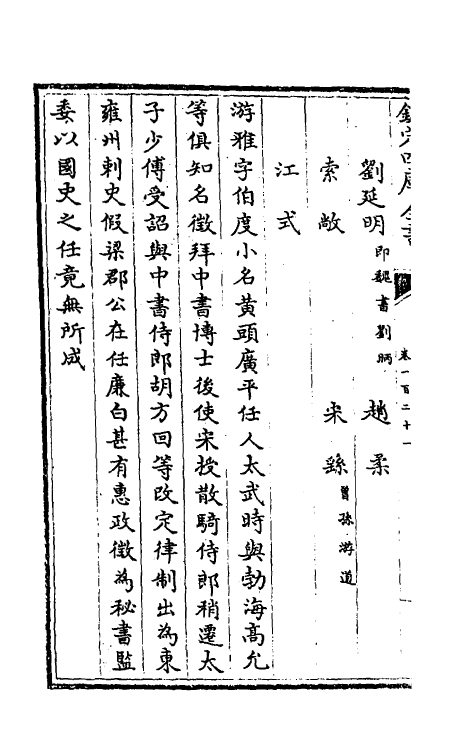 欽定四庫全書
卷一百二十一
劉延明即魏書劉昞　趙柔
索敞　宋繇曾孫游道
江式
游雅字伯度小名黄頭廣平任人太武時與勃海高允
等俱知名徵拜中書博士後使宋授散騎侍郎稍遷太
子少傅受詔與中書侍郎胡方回等改定律制出為東
雍州刺史假梁郡公在任廉白甚有惠政徵為秘書監
委以國史之任竟無所成